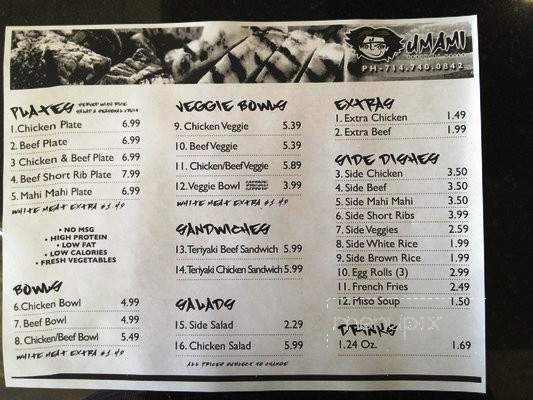 UMAMI
PH-714.740.0842
PLATES SERVED WITH RICE
1.Chicken Plate 6.99
2.Beef Plate 6.99
3 Chicken & Beef Plate 6.99
4.Beef Short Rib Plate 7.99
5.Mahi Mahi Plate 6.99
WHITE MEAT EXTRA $1.49
• NO MSG
• HIGH PROTEIN
• LOW FAT
• LOW CALORIES
• FRESH VEGETABLES
BOWLS
6.Chicken Bowl 4.99
7. Beef Bowl 4.99
8. Chicken/Beef Bowl 5.49
WHITE MEAT EXTRA $1.49
VEGGIE BOWLS
9. Chicken Veggie 5.39
10. Beef Veggie 5.39
11. Chicken/Beef Veggie 5.89
12. Veggie Bowl 3.99
SANDWICHES
13. Teriyaki Beef Sandwich 5.99
14. Teriyaki Chicken Sandwich 5.99
SALADS
15. Side Salad 2.29
16. Chicken Salad 5.99
ALL PRICES SUBJECT TO CHANGE
EXTRAS
1. Extra Chicken 1.49
2. Extra Beef 1.99
SIDE DISHES
3. Side Chicken 3.50
4. Side Beef 3.50
5. Side Mahi Mahi 3.50
6. Side Short Ribs 3.99
7. Side Veggies 2.59
8. Side White Rice 1.99
9. Side Brown Rice 1.99
10. Egg Rolls (3) 2.99
11. French Fries 2.49
12. Miso Soup 1.50
DRINKS
1.24 Oz. 1.69